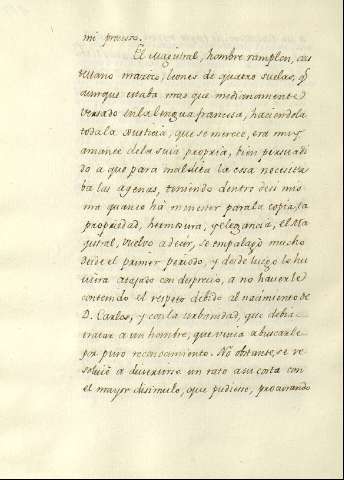 mi processo.
El Magistral, hombre ramplon, cas
tellano mazizo, leones de quatro suelas, q̃
aunque estaba mas que medianamente
versado en la lengua francesa, haciendola
toda la Justicia, que se merece, era muy
amante de la suia propria, bien persuadi
do a que para maldita la cosa necesita
ba las agenas, teniendo dentro de si mis
ma quanto há menester para la copia, la
propriedad, hermosura, y elegancia, el Ma
gistral, vuelvo a decir, se empalagó mucho
desde el primer periodo, y desde luego le hu
viera atajado con desprecio, a no haverle
contenido el respeto debido al nacimiento de
D. Carlos, y con la urbanidad, que debia
tratar a un hombre, que venia a buscarle
por puro reconocimiento. No obstante, se re
solvió a divertirse un rato a su costa con
el mayor disimulo, que pudiesse, procurando